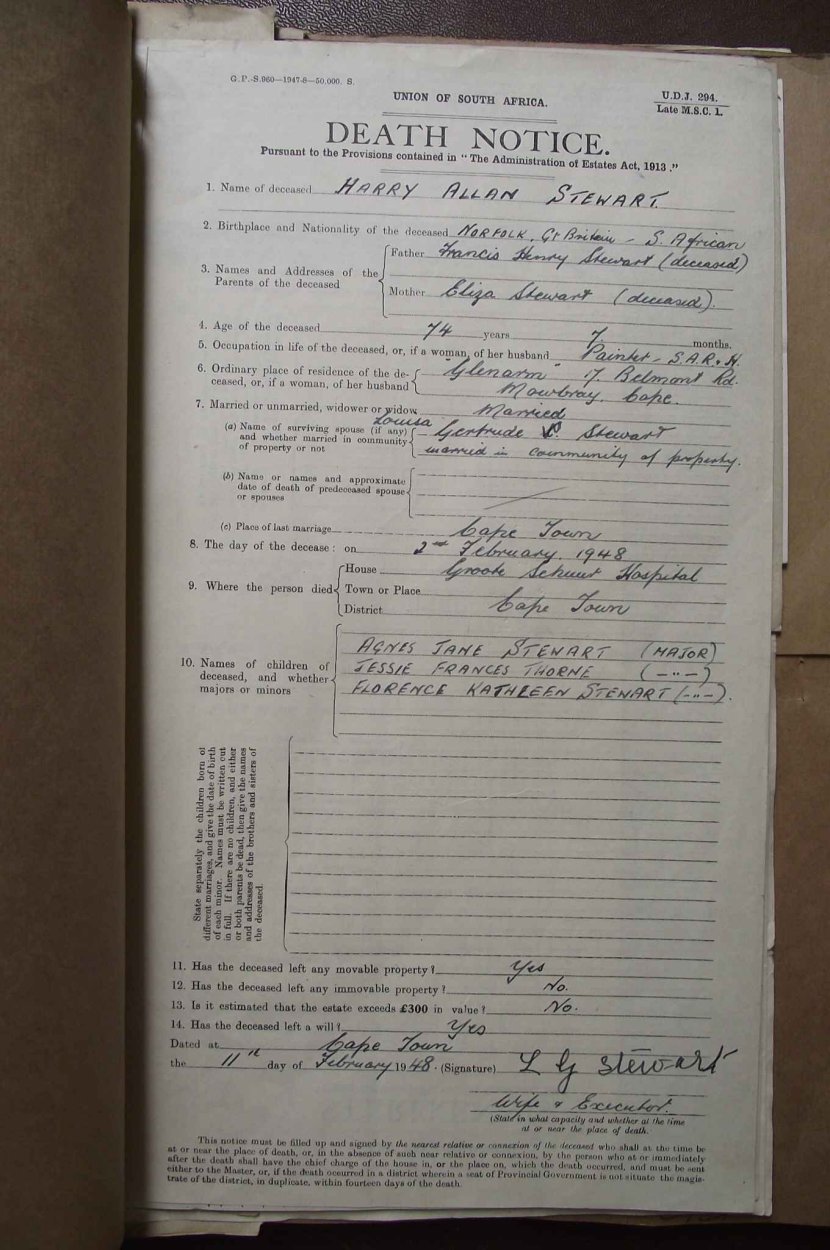 G.P.-S.960—1947-8—50,000. S.
UNION OF SOUTH AFRICA.
U.D.J. 294.
Late M.S.C. 1.
DEATH NOTICE.
Pursuant to the Provisions contained in "The Administration of Estates Act, 1913."
1. Name of deceased HARRY ALLAN STEWART.
2. Birthplace and Nationality of the deceased NORFOLK, Gt Britain - S. African
3. Names and Addresses of the Parents of the deceased
Father Francis Henry Stewart (deceased)
Mother Eliza Stewart (deceased).
4. Age of the deceased 74 years 7 months.
5. Occupation in life of the deceased, or, if a woman, of her husband Painter - S.A.R. & H.
6. Ordinary place of residence of the de-
ceased, or, if a woman, of her husband
"Glenarm" 17, Belmont Rd.
Mowbray, Cape.
7. Married or unmarried, widower or widow Married
(a) Name of surviving spouse (if any)
and whether married in community
of property or not
Louisa
Gertrude Stewart
married in community of property.
(b) Name or names and approximate
date of death of predeceased spouse
or spouses
(c) Place of last marriage Cape Town
8. The day of the decease: on 2nd February, 1948
9. Where the person died
House Groote Schuur Hospital
Town or Place
District Cape Town
10. Names of children of
deceased, and whether
majors or minors
AGNES JANE STEWART (MAJOR)
JESSIE FRANCES THORNE (-"-)
FLORENCE KATHLEEN STEWART (-"-).
State separately the children born of
different marriages, and give the date of birth
of each minor. Names must be written out
in full. If there are no children, and either
or both parents be dead, then give the names
and addresses of the brothers and sisters of
the deceased.
11. Has the deceased left any movable property? Yes
12. Has the deceased left any immovable property? No.
13. Is it estimated that the estate exceeds £300 in value? No.
14. Has the deceased left a will? Yes
Dated at Cape Town
the 11th day of February 1948. (Signature) L G Stewart
Wife & Executor.
(State in what capacity and whether at the time
at or near the place of death.
This notice must be filled up and signed by the nearest relative or connexion of the deceased who shall at the time be
at or near the place of death, or, in the absence of such near relative or connexion, by the person who at or immediately
after the death shall have the chief charge of the house in, or the place on, which the death occurred, and must be sent
either to the Master, or, if the death occurred in a district wherein a seat of Provincial Government is not situate the magis-
trate of the district, in duplicate, within fourteen days of the death.